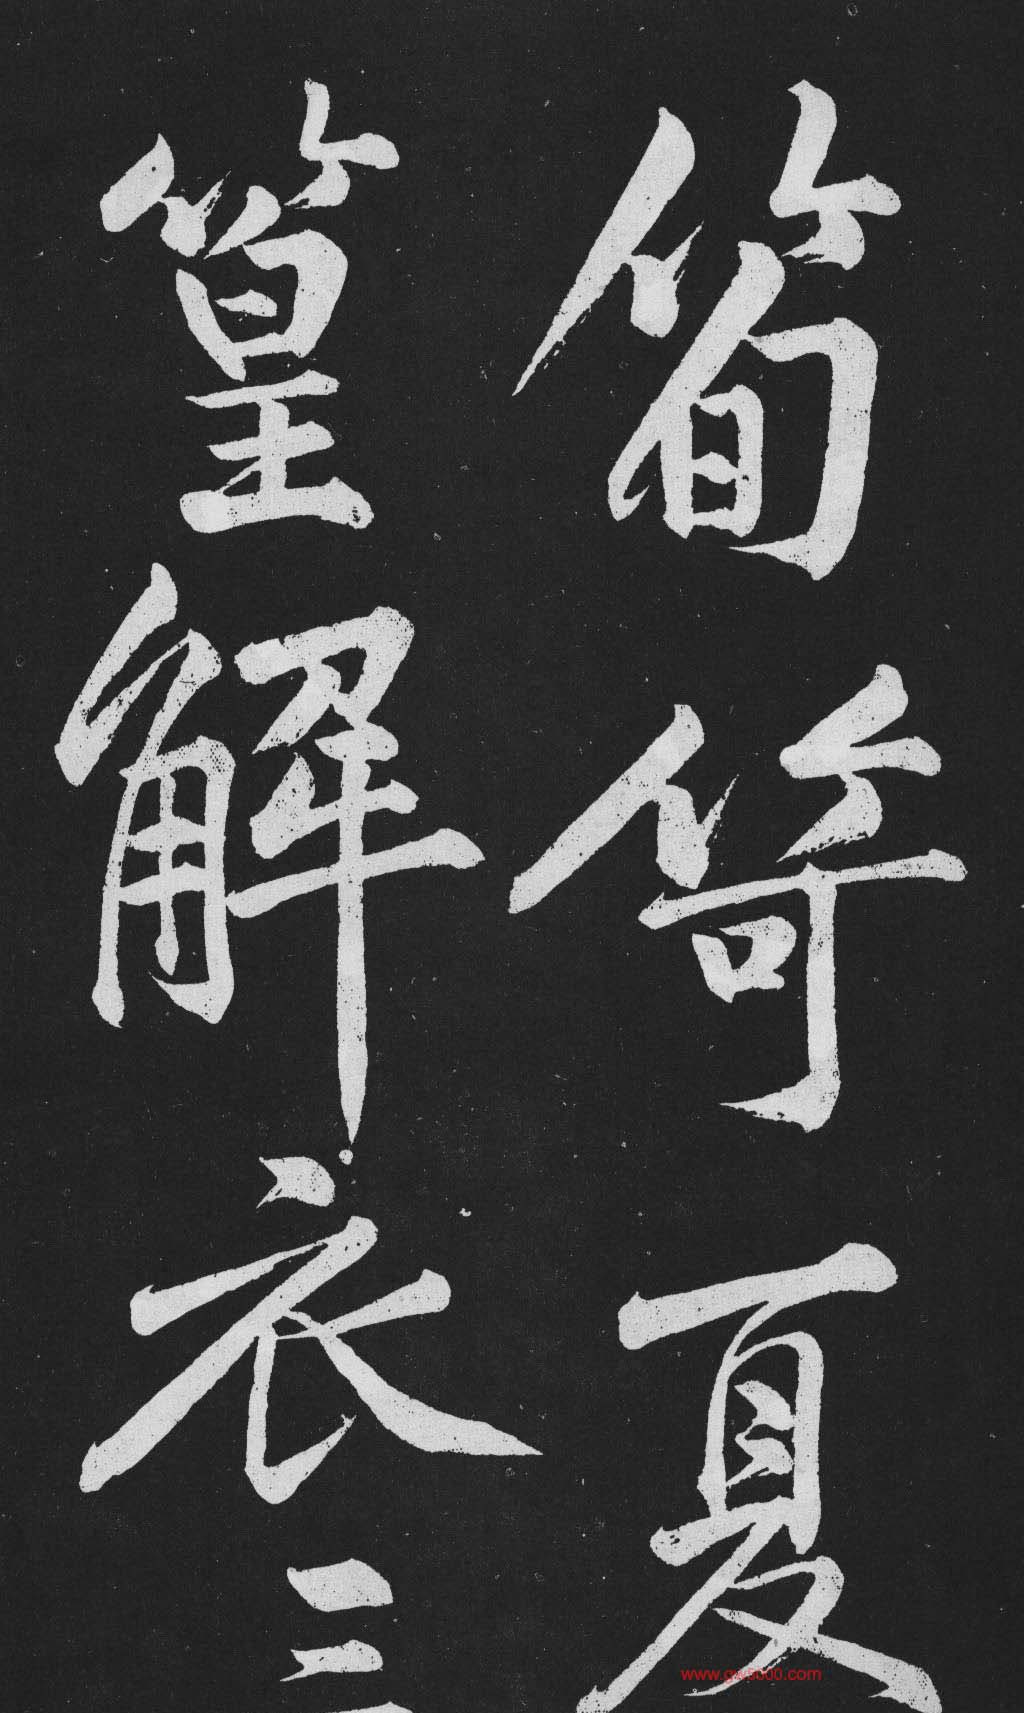 筍笴夏
篁解衣三
www.gw5000.com